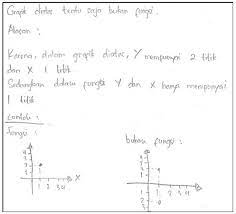 Grafik diatas tentu saja bukan fungsi.
Alasan :
Karena, dalam grafik diatas, Y mempunyai 2 titik
dan X 1 titik
Sedangkan dalam fungsi Y dan X hanya mempunyai
1 titik
Contoh :
Fungsi :
bukan fungsi :
X
1 2 3 4
1 2 3 4